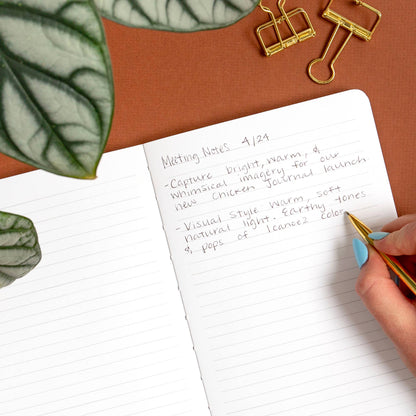 Meeting Notes 4/24
- Capture bright, warm, &
whimsical imagery for our
new Chicken Journal launch.
- Visual Style warm, soft
natural light. Earthy tones
& pops of color